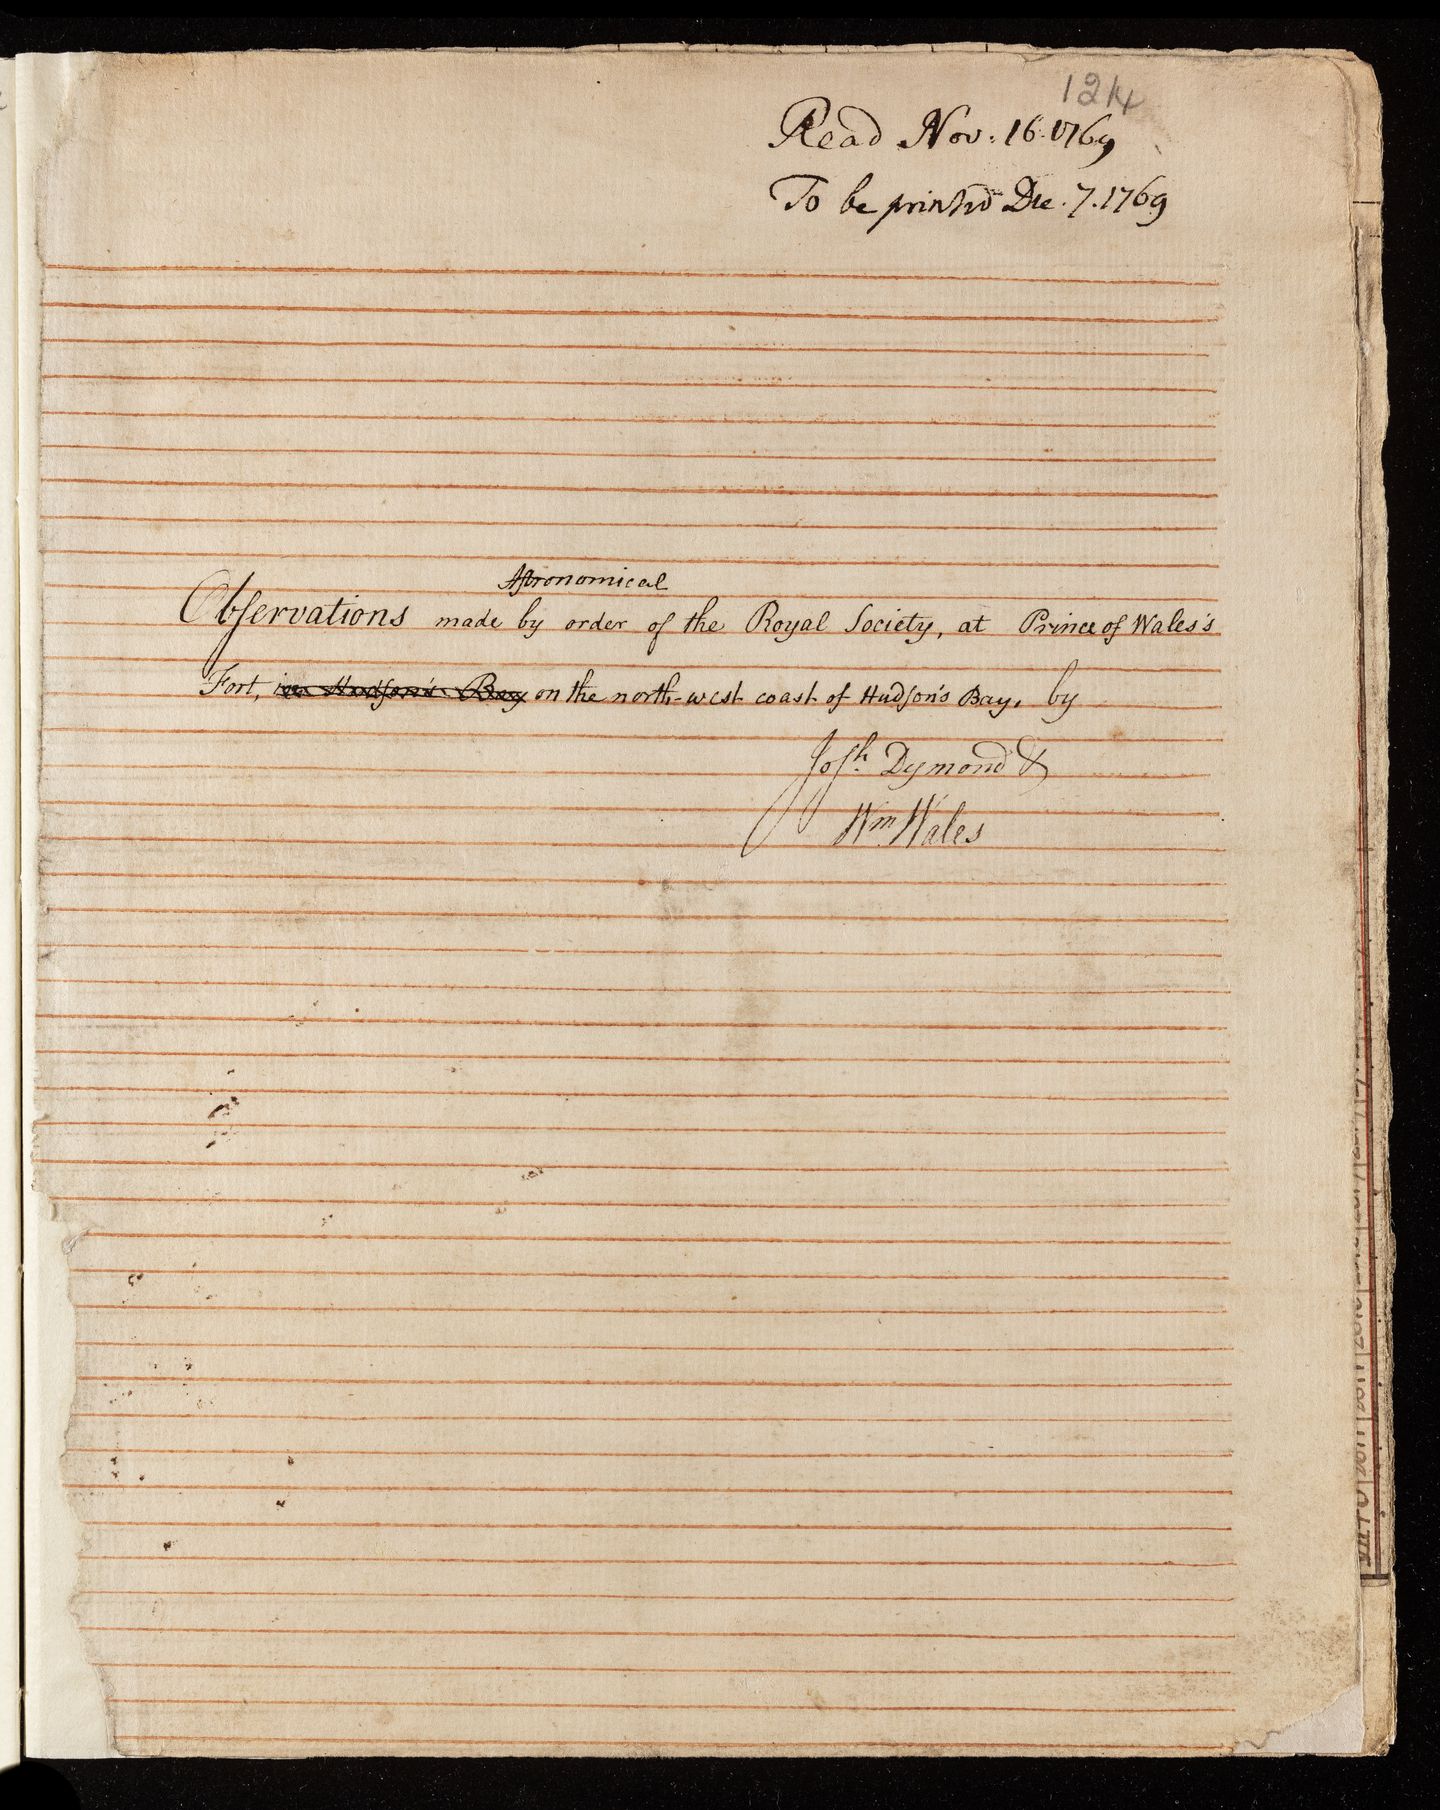 124
Read Nov. 16. 1769
To be printed Dec. 7. 1769
Astronomical
Observations made by order of the Royal Society, at Prince of Wales's
Fort, in Hudson's Bay on the north-west coast of Hudson's Bay, by
Josh. Dymond &
Wm. Wales